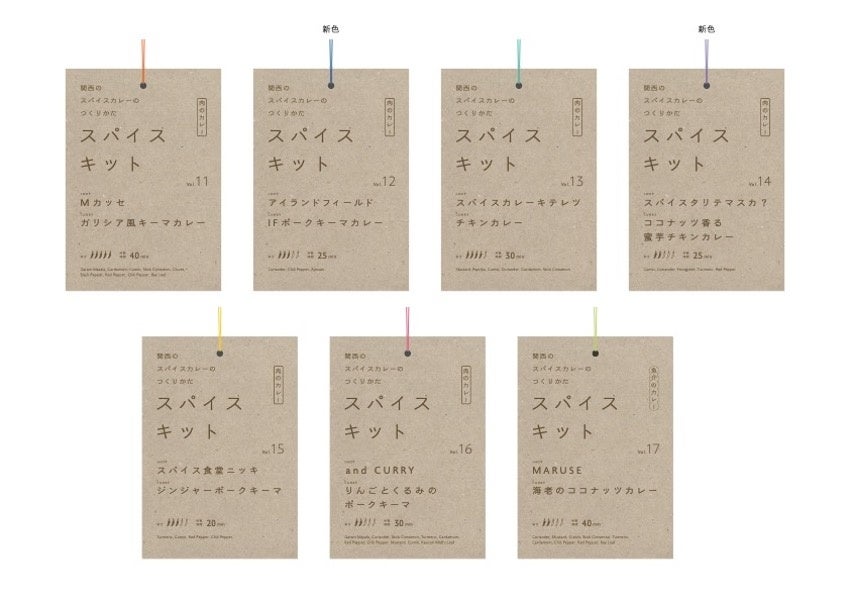 新色
新色
関西の
スパイスカレーの
つくりかた
肉のカレー
スパイス
キット
Vol.11
Mカッセ
ガリシア風キーマカレー
40min
関西の
スパイスカレーの
つくりかた
肉のカレー
スパイス
キット
Vol.12
アイランドフィールド
IFポークキーマカレー
25min
関西の
スパイスカレーの
つくりかた
肉のカレー
スパイス
キット
Vol.13
スパイスカレーキテレツ
チキンカレー
30min
関西の
スパイスカレーの
つくりかた
肉のカレー
スパイス
キット
Vol.14
スパイスタリテマスカ？
ココナッツ香る
蜜芋チキンカレー
25min
関西の
スパイスカレーの
つくりかた
肉のカレー
スパイス
キット
Vol.15
スパイス食堂ニッキ
ジンジャーポークキーマ
20min
Turmeric, Cumin, Red Pepper, Chili Pepper
関西の
スパイスカレーの
つくりかた
肉のカレー
スパイス
キット
Vol.16
and CURRY
りんごとくるみの
ポークキーマ
30min
関西の
スパイスカレーの
つくりかた
魚介のカレー
スパイス
キット
Vol.17
MARUSE
海老のココナッツカレー
40min